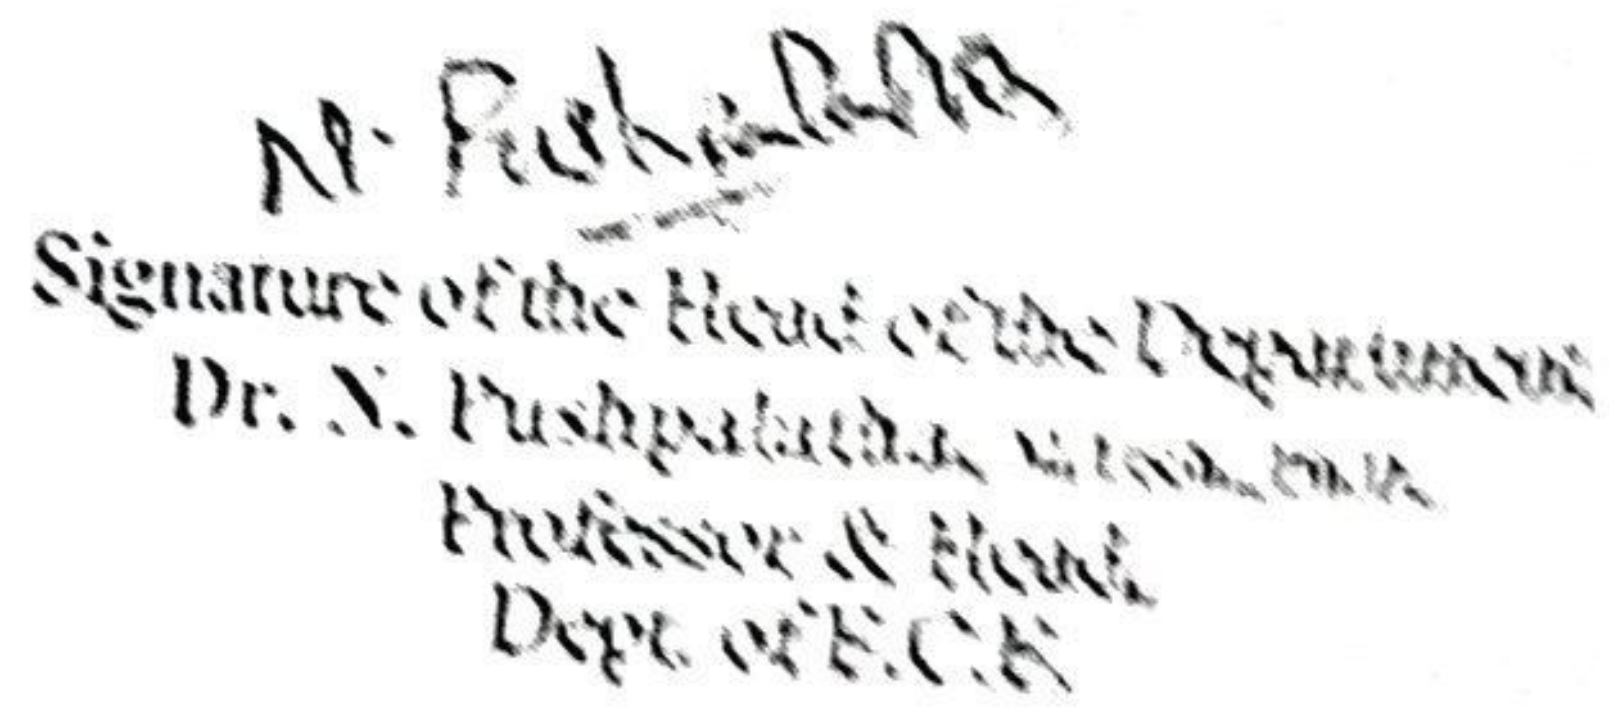 N. Pushpalatha
Signature of the Head of the Department
Dr. N. Pushpalatha M.Tech., Ph.D.,
Professor & Head,
Dept. of E.C.E